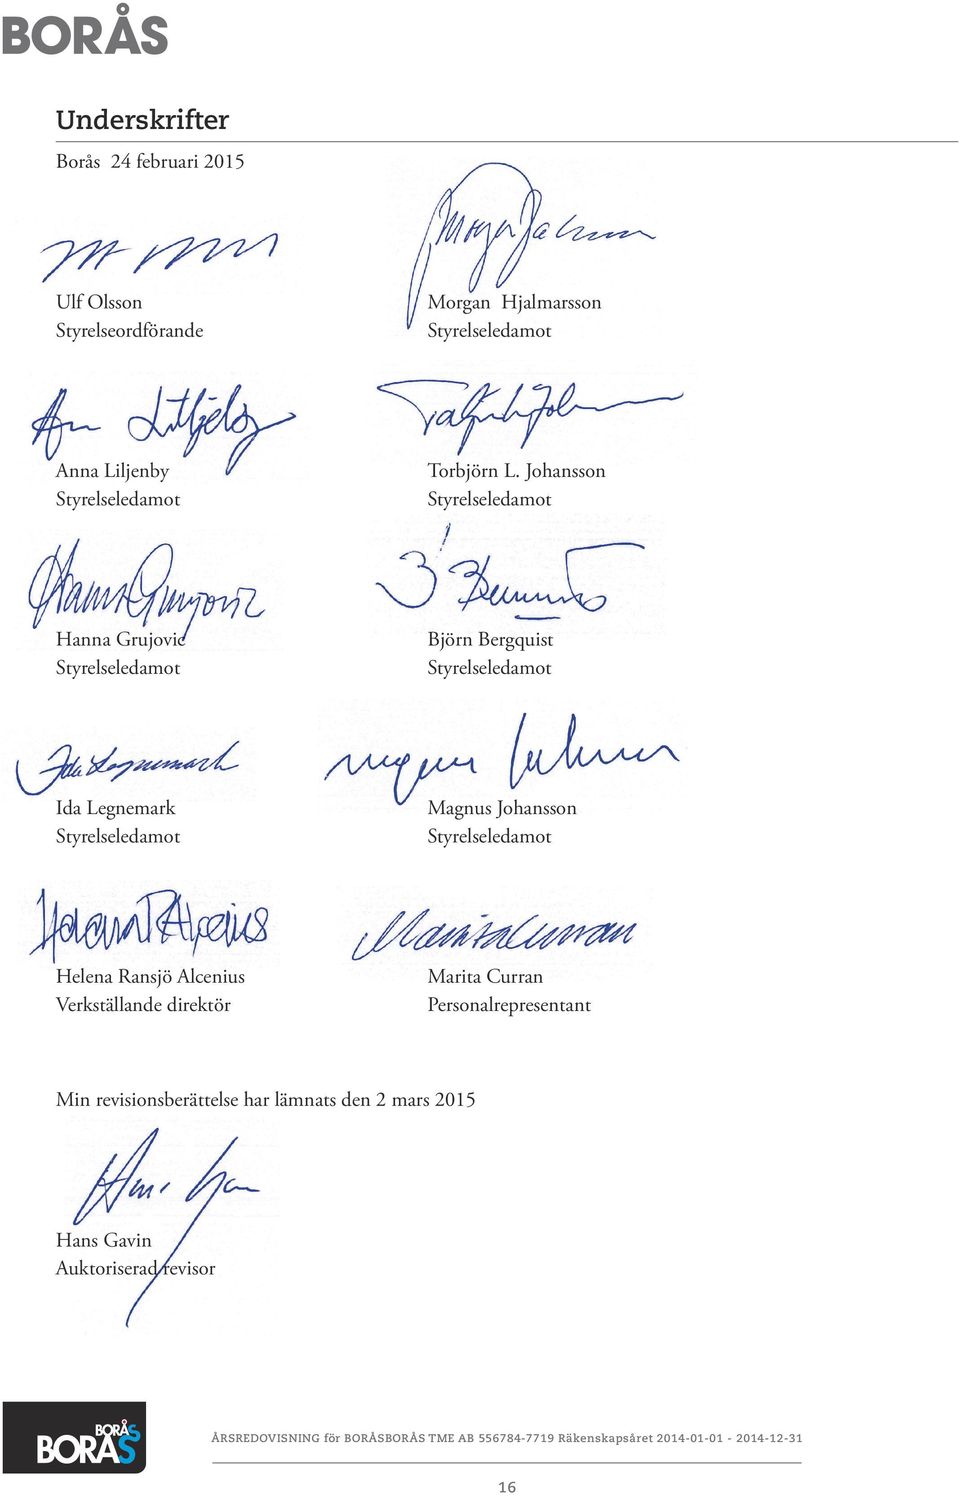 BORÅS
Underskrifter
Borås 24 februari 2015
Ulf Olsson
Styrelseordförande
Morgan Hjalmarsson
Styrelseledamot
Anna Liljenby
Styrelseledamot
Torbjörn L. Johansson
Styrelseledamot
Hanna Grujovic
Styrelseledamot
Björn Bergquist
Styrelseledamot
Ida Legnemark
Ida Legnemark
Styrelseledamot
Magnus Johansson
Styrelseledamot
Helena Ransjö Alcenius
Verkställande direktör
Marita Curran
Marita Curran
Personalrepresentant
Min revisionsberättelse har lämnats den 2 mars 2015
Hans Gavin
Auktoriserad revisor
BORÅS
BORÅS
ÅRSREDOVISNING för BORÅSBORÅS TME AB 556784-7719 Räkenskapsåret 2014-01-01 - 2014-12-31
16